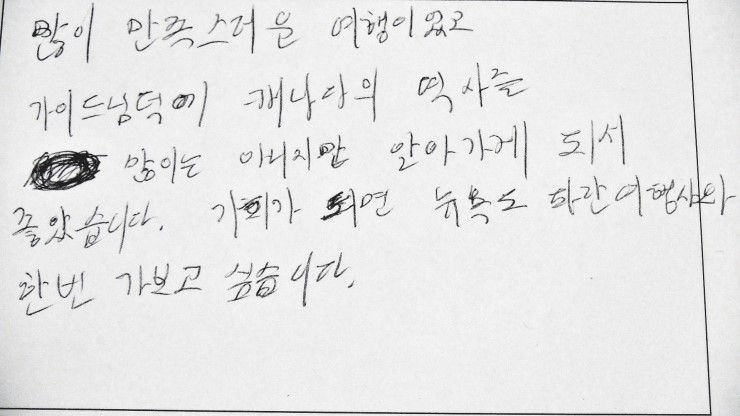 많이 만족스러운 여행이였고
가이드님덕에 캐나다의 역사를
많이는 아니지만 알아가게 되서
좋았습니다. 기회가 되면 뉴욕도 파란여행사와
한번 가보고 싶습니다.